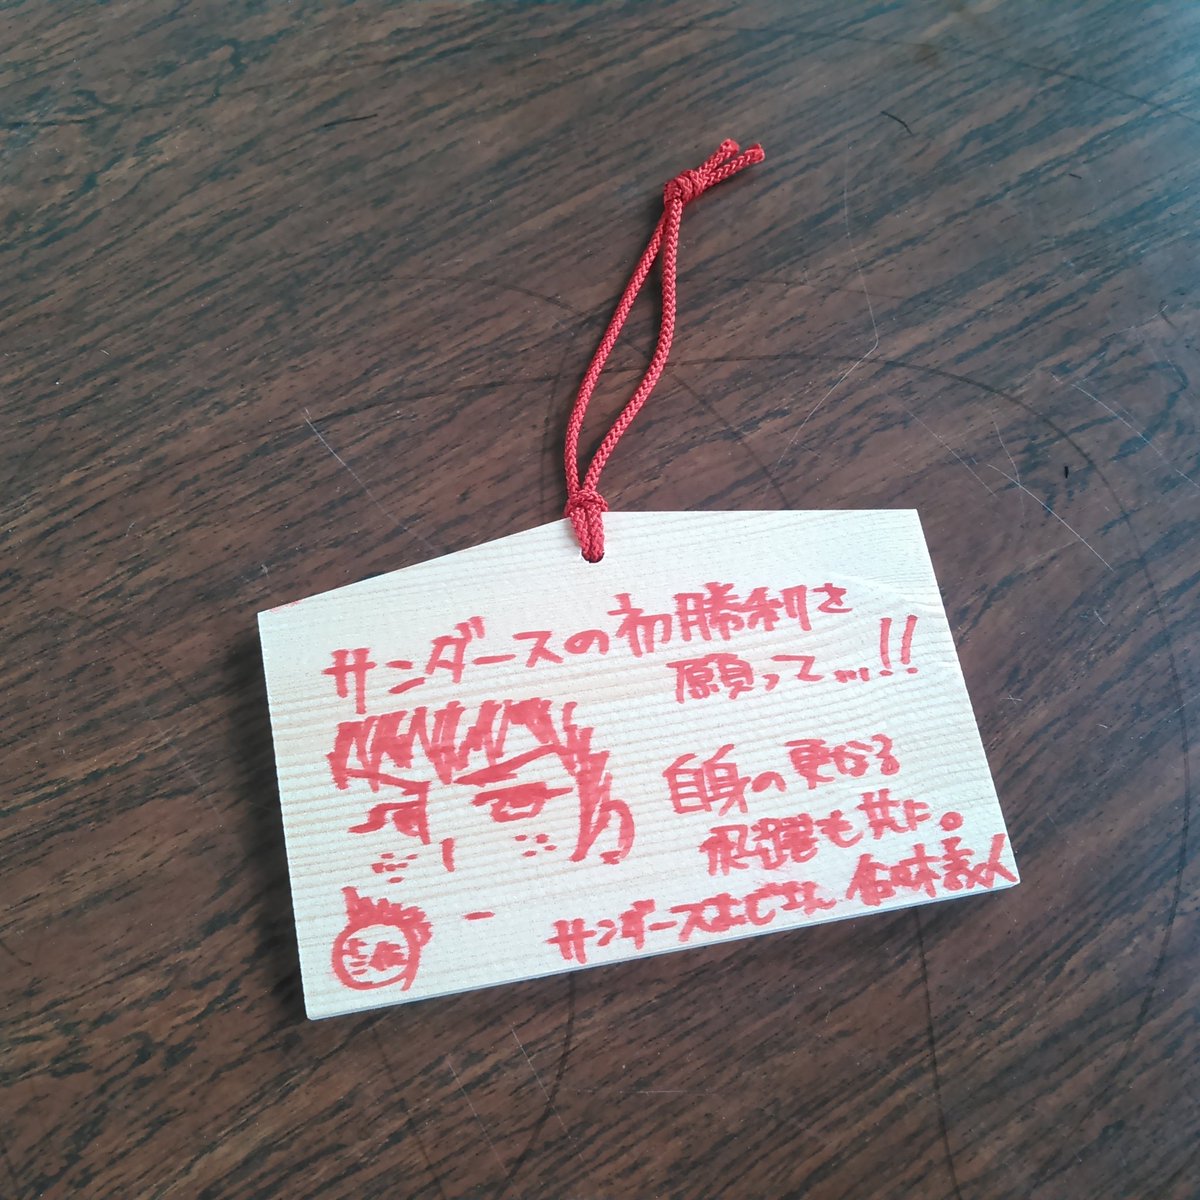 サンダースの初勝利を
願って…!!
自身の更なる
飛躍も共に。
サンダースおじさん